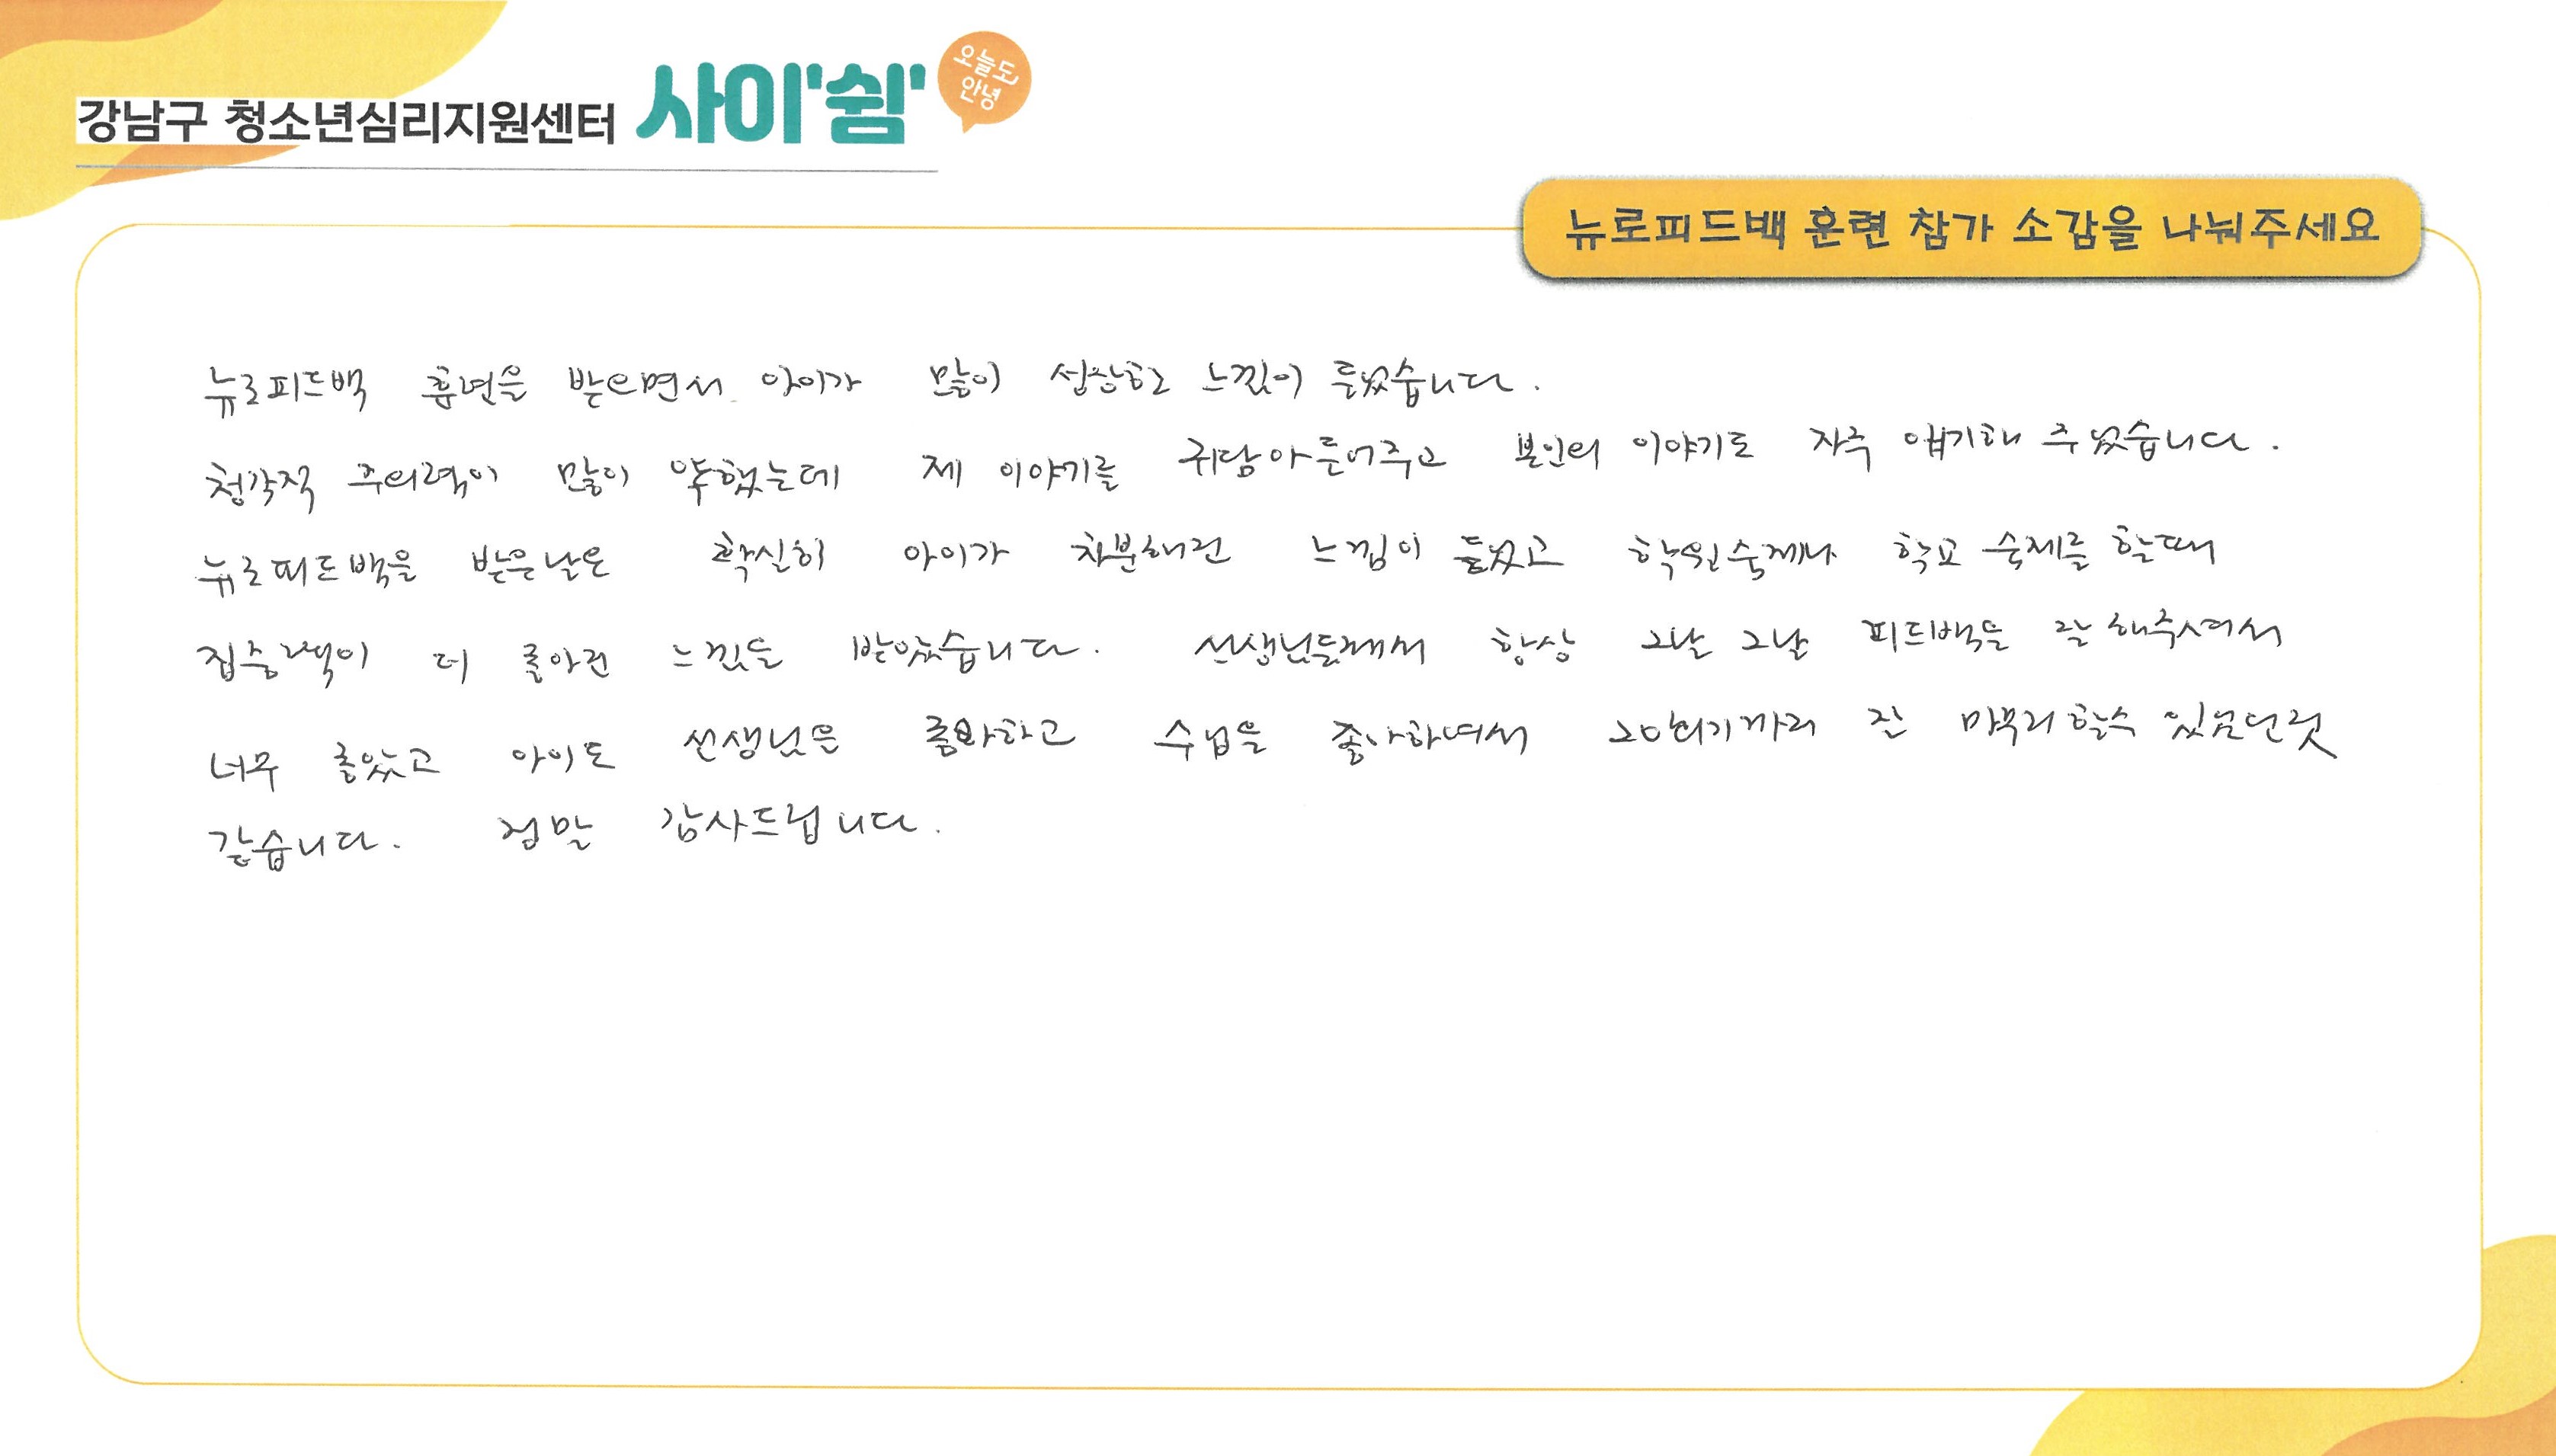 오늘도
안녕
강남구 청소년심리지원센터 사이'쉼'
뉴로피드백 훈련 참가 소감을 나눠주세요
뉴로피드백 훈련을 받으면서 아이가 많이 성장한 느낌이 들었습니다.
청각적 주의력이 많이 약했는데 제 이야기를 귀담아 들어주고 본인의 이야기도 자주 얘기해 주었습니다.
뉴로피드백을 받은날은 확실히 아이가 차분해진 느낌이 들었고 학원숙제나 학교 숙제를 할때
집중력이 더 좋아진 느낌을 받았습니다. 선생님들께서 항상 그날 그날 피드백을 잘 해주셔서
너무 좋았고 아이도 선생님을 좋아하고 수업을 좋아하여서 20회기까지 잘 마무리 할수 있었던것
같습니다. 정말 감사드립니다.